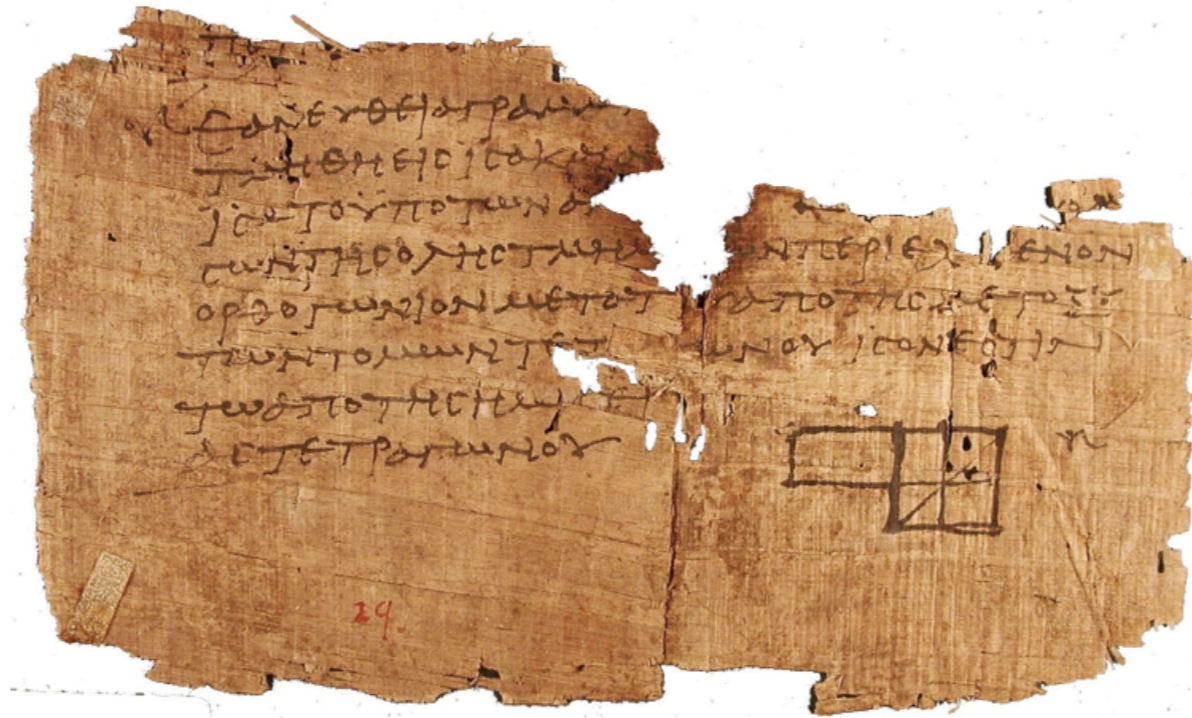 ΕΑΝ ΕΥΘΕΙΑ ΓΡΑΜΜ
ΤΜΗΘΗ ΕΙϹ ΙϹΑ Κ
ΙϹΑ ΤΟ ΥΠΟ ΤΩΝ ΑΝ
ϹΩΝ ΤΗϹ ΟΛΗϹ ΤΜΗΜ ΩΝ ΠΕΡΙΕΧ ΕΝΟΝ
ΟΡΘΟΓΩΝΙΟΝ ΜΕΤΑ Τ ΑΠΟ ΤΗϹ ΜΕΤΟΞΥ
ΤΩΝ ΤΟΜΩΝ ΤΕΤ ΩΝΟΥ ΙϹΟΝ ΕϹΤΙΝ
ΤΩ ΑΠΟ ΤΗϹ ΗΜΙ
ΑϹ ΤΕΤΡΑΓΩΝΟΥ
29